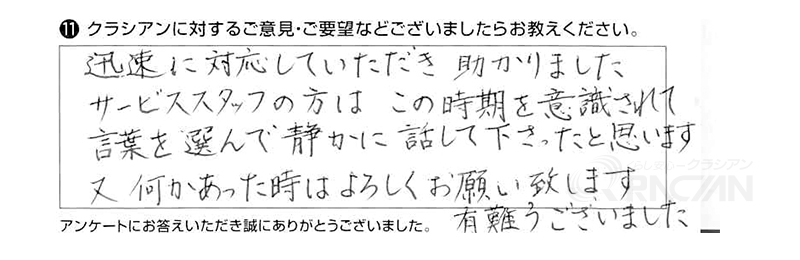 ⑪ クラシアンに対するご意見・ご要望などございましたらお教えください。
迅速に対応していただき 助かりました
サービススタッフの方は この時期を意識されて
言葉を選んで静かに話して下さったと思います
又 何かあった時はよろしくお願い致します
有難うございました
アンケートにお答えいただき誠にありがとうございました。
クラシアン